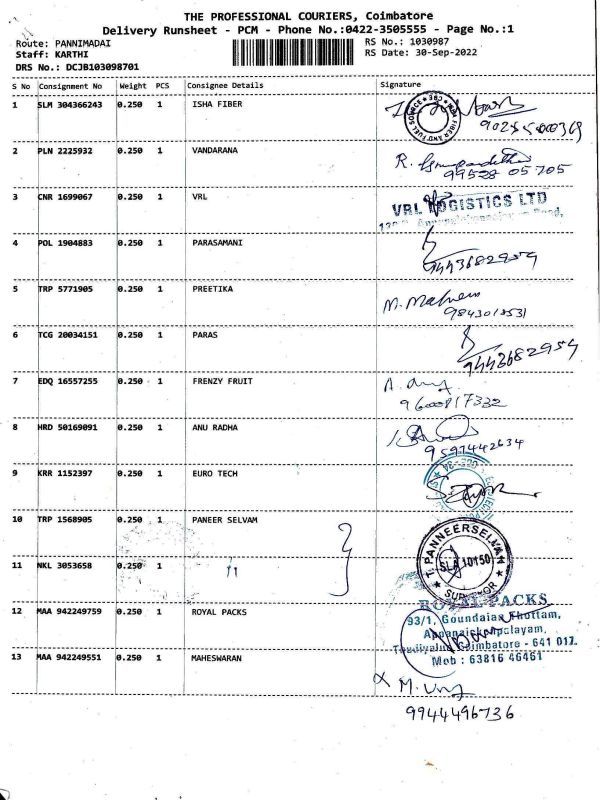 THE PROFESSIONAL COURIERS, Coimbatore
Delivery Runsheet - PCM - Phone No.:0422-3505555 - Page No.:1
Route: PANNIMADAI
RS No.: 1030987
Staff: KARTHI
RS Date: 30-Sep-2022
DRS No.: DCJB103098701
S No Consignment No Weight PCS Consignee Details Signature
1 SLM 304366243 0.250 1 ISHA FIBER
90255 00369
2 PLN 2225932 0.250 1 VANDARANA
R.
99528 05705
3 CNR 1699067 0.250 1 VRL
VRL LOGISTICS LTD
4 POL 1904883 0.250 1 PARASAMANI
9443682959
5 TRP 5771905 0.250 1 PREETIKA
M.
6 TCG 20034151 0.250 1 PARAS
9443682959
7 EDQ 16557255 0.250 1 FRENZY FRUIT
9600817332
8 HRD 50169091 0.250 1 ANU RADHA
9597442634
9 KRR 1152397 0.250 1 EURO TECH
10 TRP 1568905 0.250 1 PANEER SELVAM
T. PANNEERSELVAM
SLA 10150
SURVEYOR
11 NKL 3053658 0.250 1 11
12 MAA 942249759 0.250 1 ROYAL PACKS
ROYAL PACKS
93/1, Goundaian Thottam,
Appanaickenpalayam,
Coimbatore - 641 017.
Mob : 63816 46461
13 MAA 942249551 0.250 1 MAHESWARAN
M.
9944496736